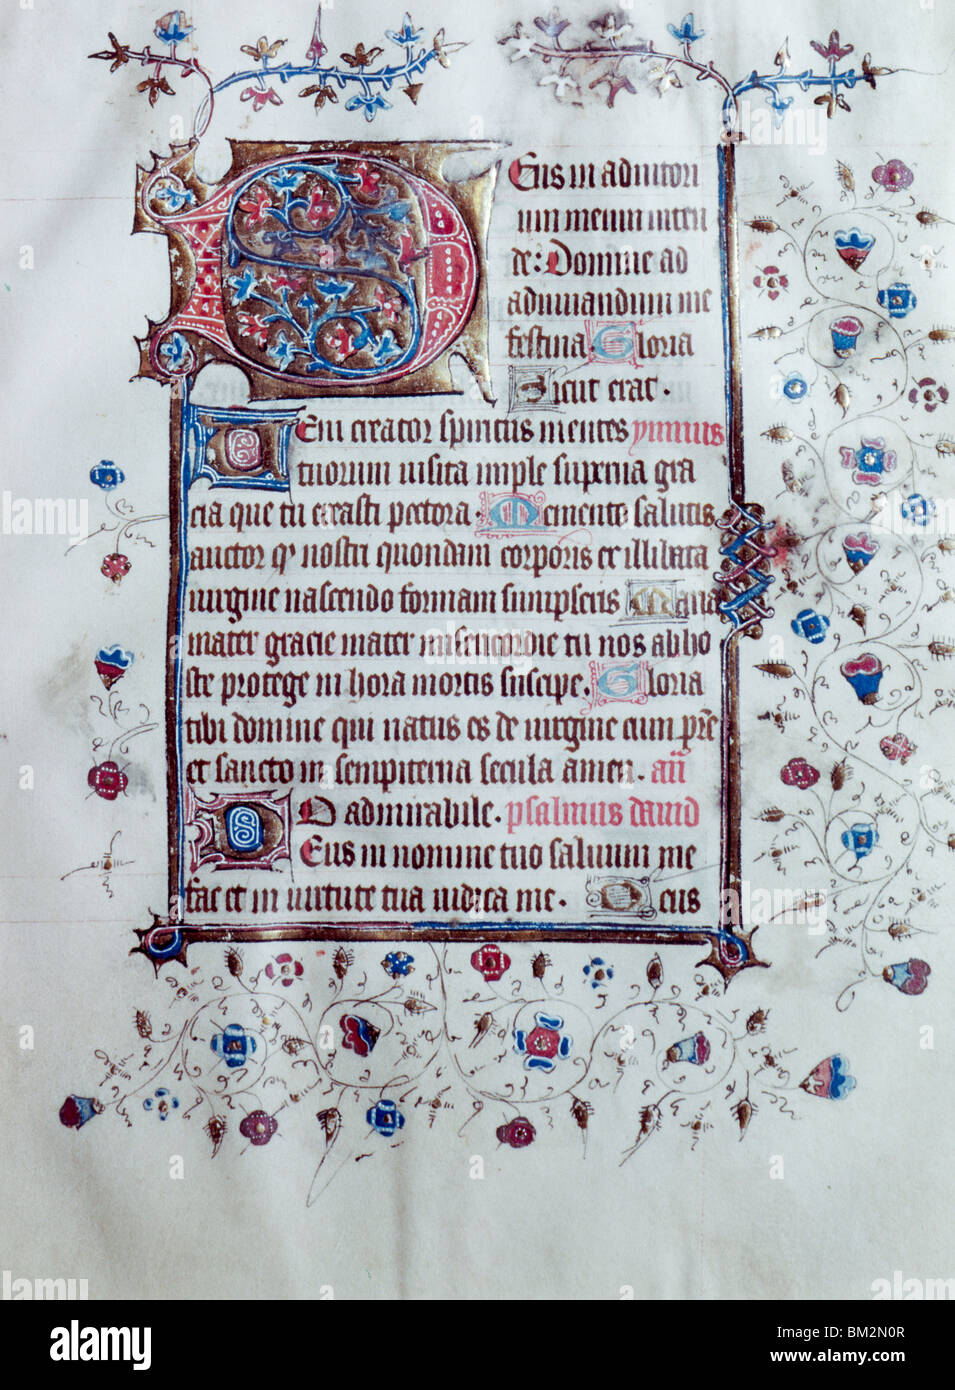 Deus in adiutori
um meum inten
de: Domine ad
adiuuandum me
festina Gloria
Sicut erat.
Veni creator spiritus mentes ymnus
tuorum uisita imple superna gra
cia que tu creasti pectora. Memento salutis
auctor q nostri quondam corporis et illibata
uirgine nascendo formam sumpseris Maria
mater gracie mater misericordie tu nos ab ho
ste protege in hora mortis suscipe. Gloria
tibi domine qui natus es de uirgine cum pre
et sancto in sempiterna secula amen. an
O admirabile. psalmus dauid
Deus in nomine tuo saluum me
fac et in uirtute tua iudica me. Deus
alamy
alamy
alamy
Image ID: BM2N0R
www.alamy.com